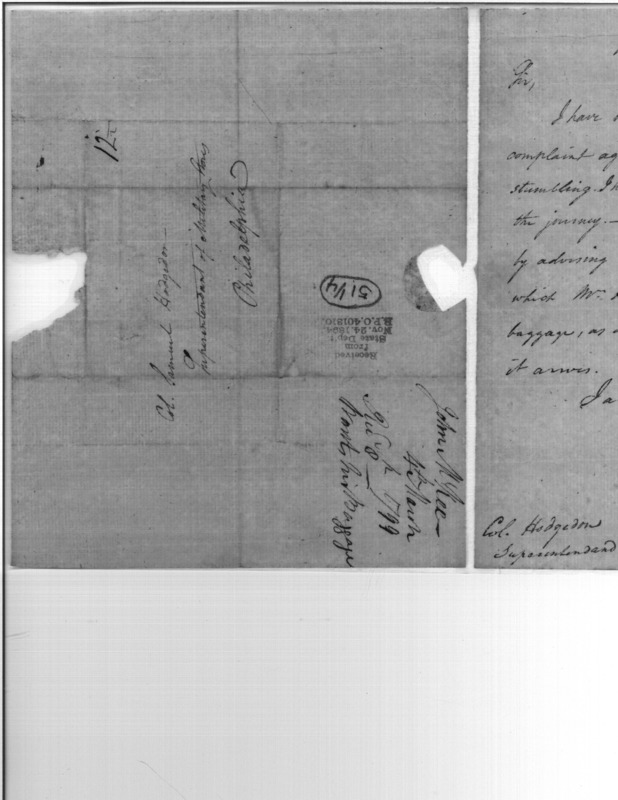 12
Col. Samuel Hodgedon
Superintendant of Military
Philadelphia
51¼
Received
from
State Dep't
Nov. 24, 1894.
R.P.O. 401810.
John McKee
4th March 1799
Recd 8th
Wants his Baggage
Sir,
I have
complaint ag
stumbling. I
the journey.—
by advising
which Mr.
baggage, as
it arrives.
I a
Col. Hodgedon
Superintendand